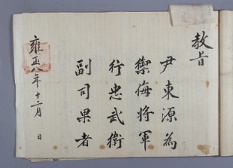 教旨
尹東源爲
禦侮將軍
行忠武衛
副司果者
雍正八年十二月 日